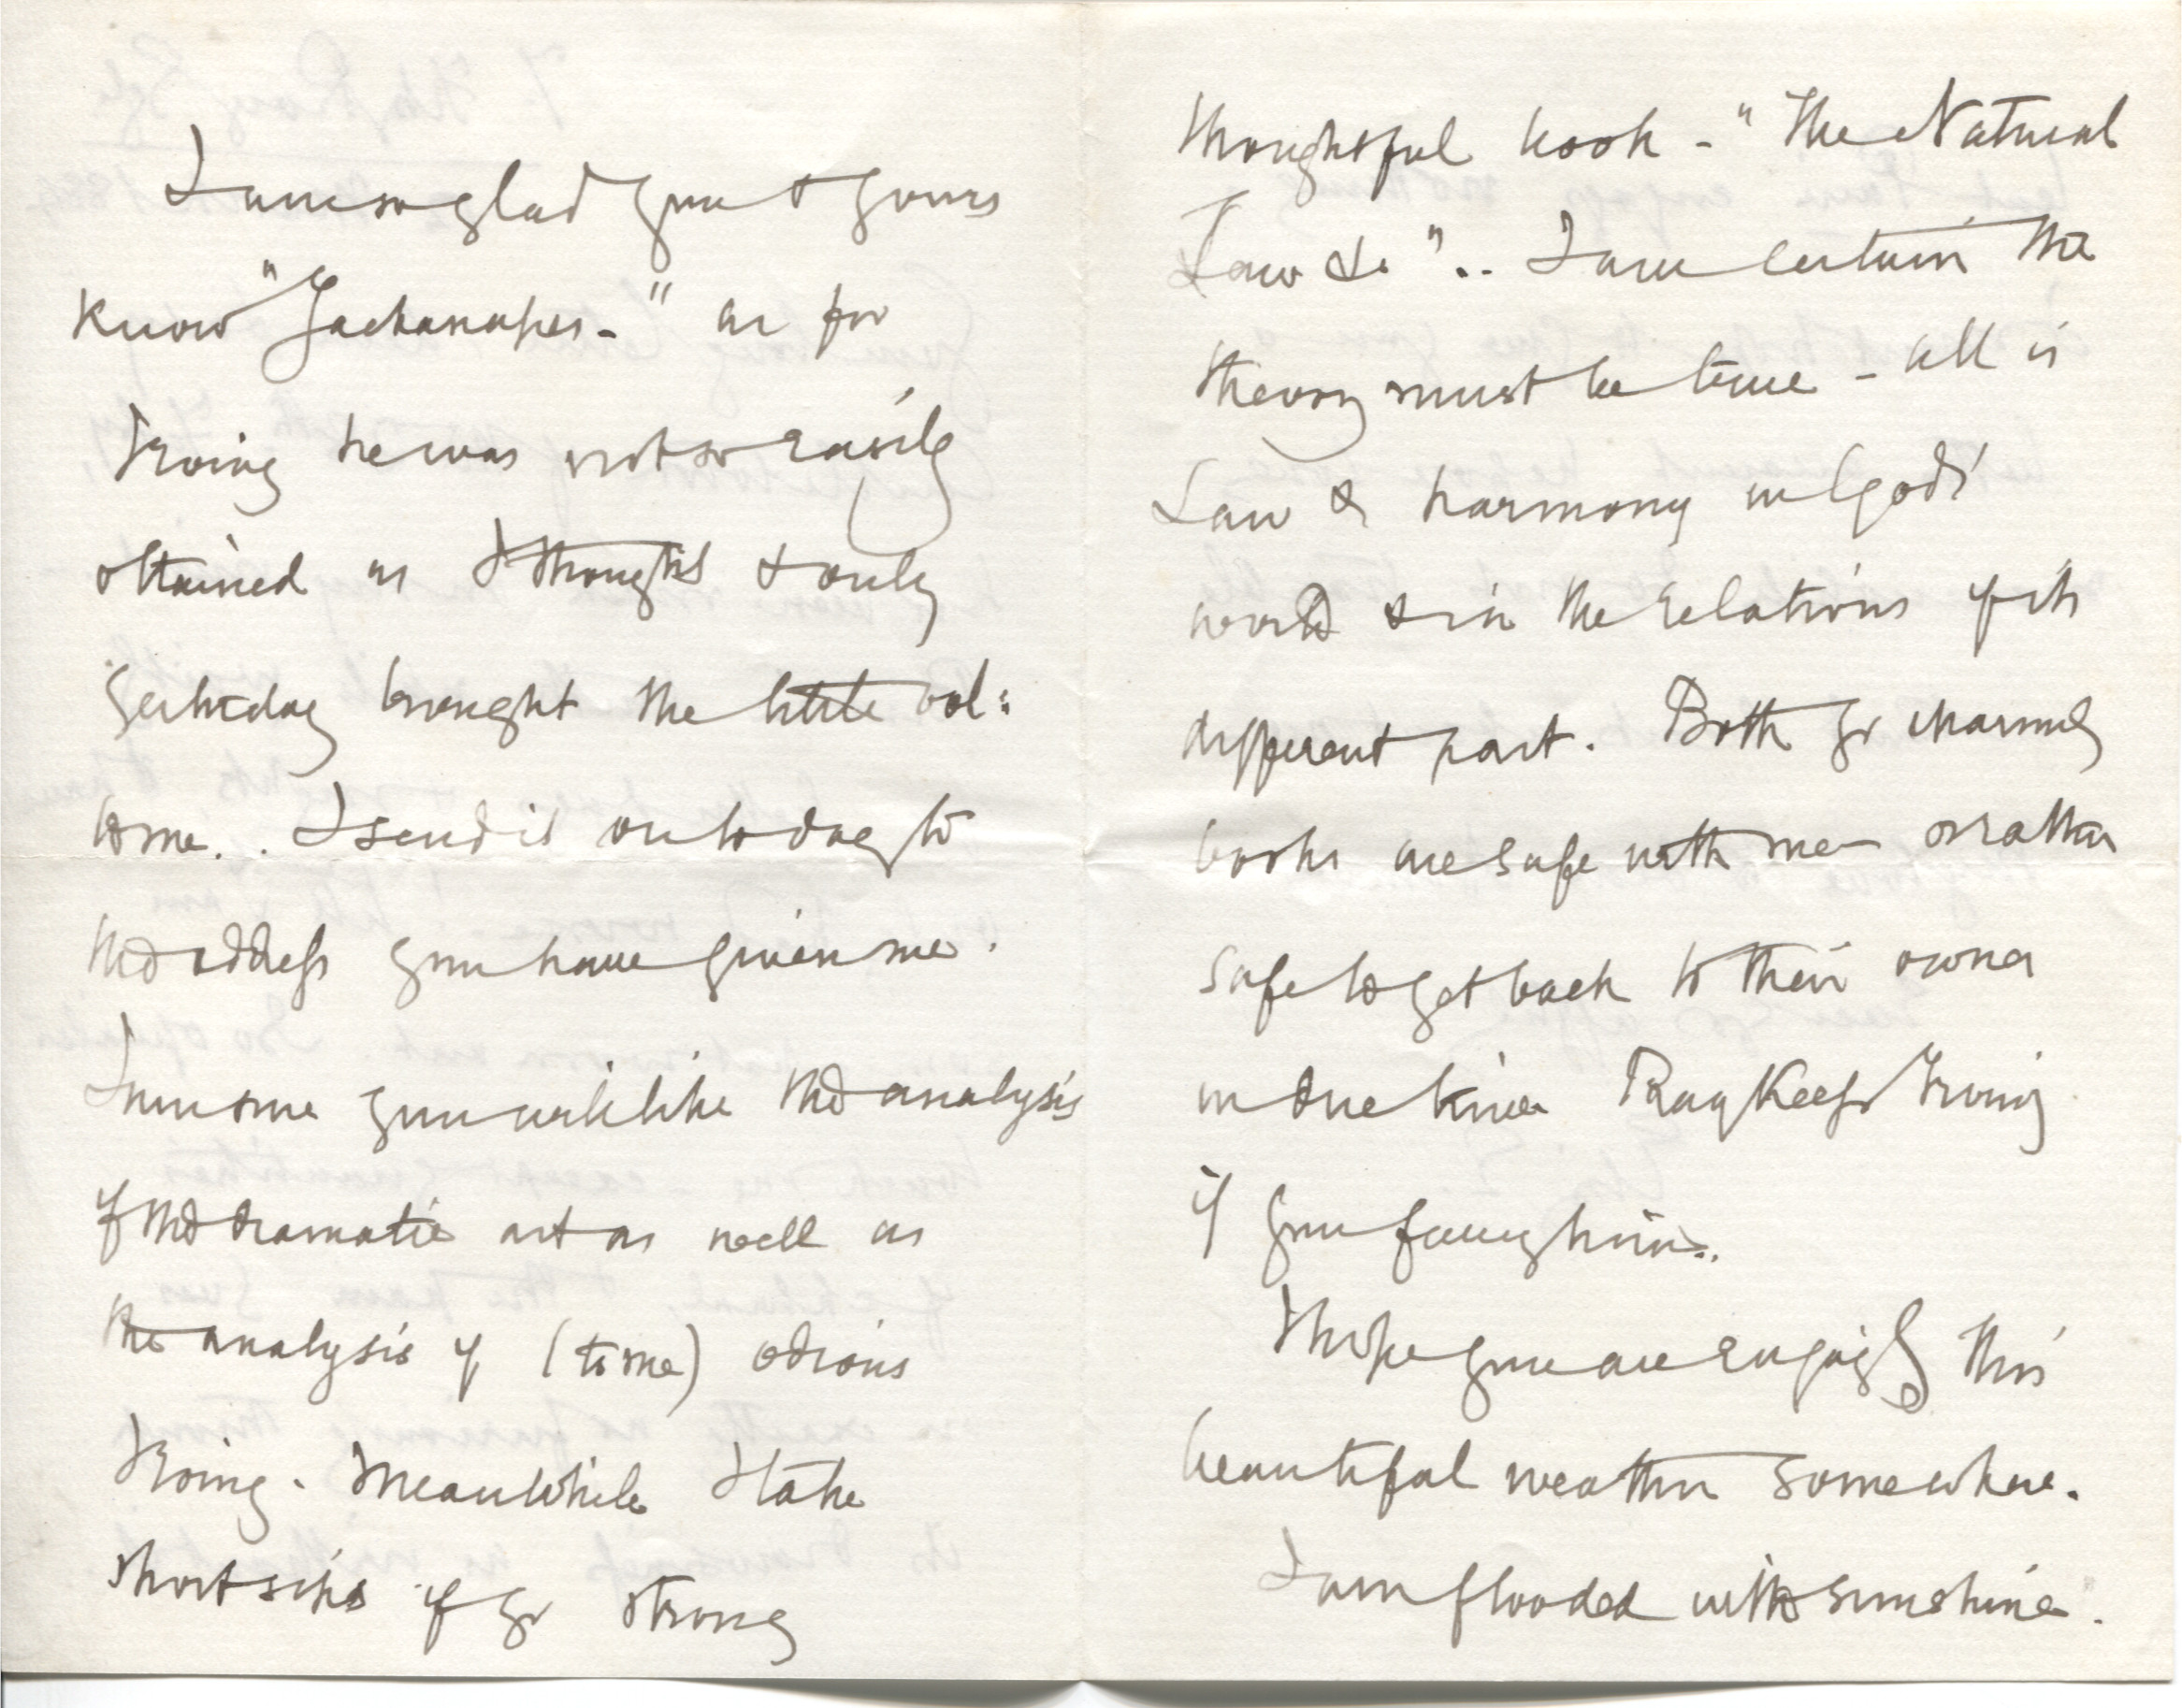 I am so glad you & yours
know "Jackanapes-" as for
Irving he was not so easily
obtained as I thought & only
yesterday brought the little vol:
to me.. I send it on to day to
the address you have given me.
I am sure you will like the analysis
of the dramatic art as well as
the analysis of (to me) odious
Irving. Meanwhile I take
short sips of yr strong
thoughtful book - "The Natural
Law &c".. I am certain the
theory must be true - all is
Law & harmony in God's
world & in the relations of its
different part. Both yr charming
books are safe with me or rather
safe to get back to their owner
in due time Pray Keep Irving
if you fancy him..
I hope you are enjoying this
beautiful weather somewhere.
I am flooded with sunshine.